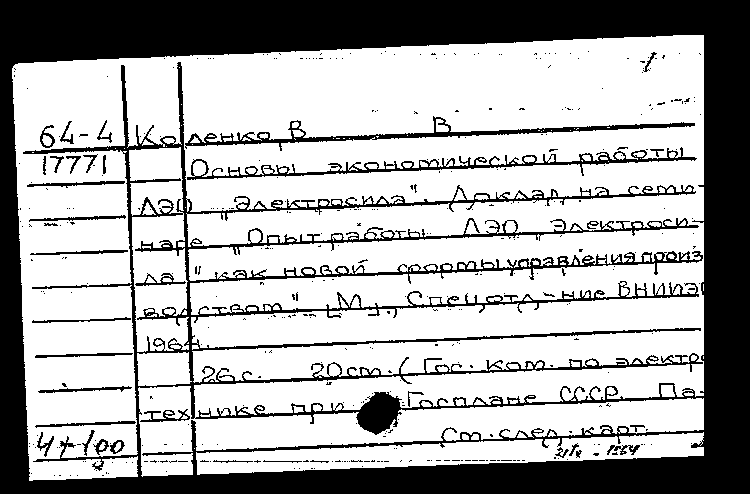 64-4 Коленко, В В
17771 Основы экономической работы
ЛЭО „Электросила". Доклад на семи-
наре „Опыт работы ЛЭО „Электроси-
ла" как новой формы управления произ
водством". [М.], Спец. отд-ние ВНИИЭ
1964.
26 с. 20 см. (Гос. ком. по электро
технике при Госплане СССР. Па-
4+100 См. след. карт.